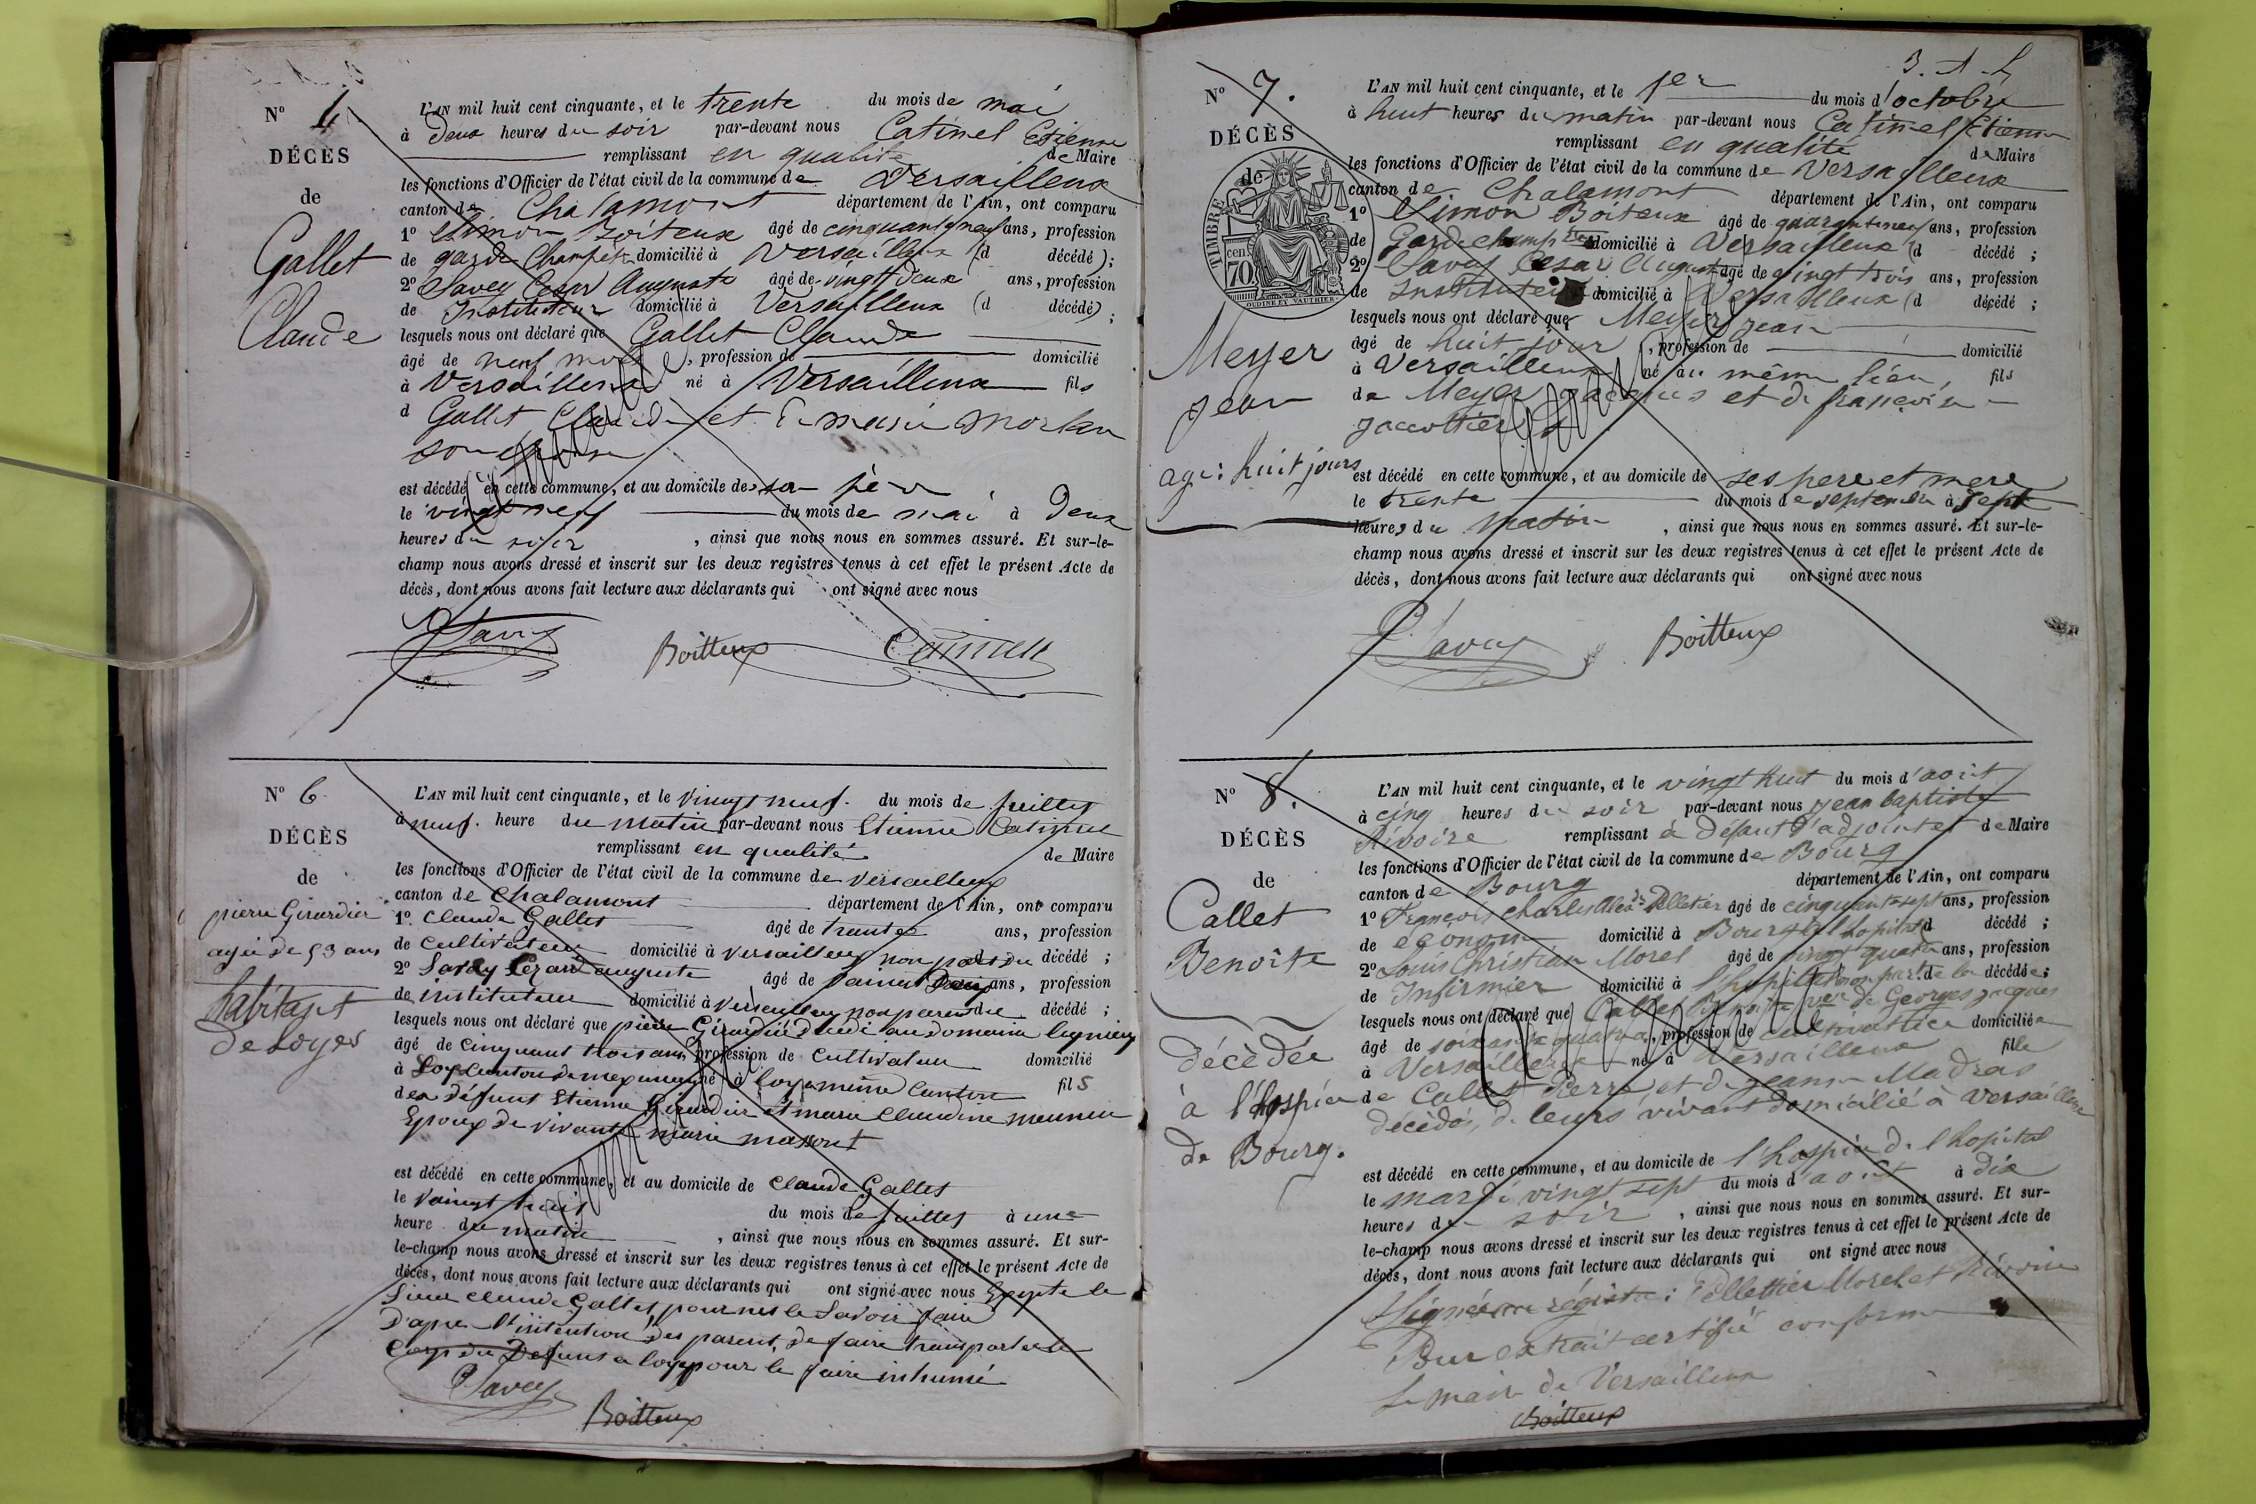 N° 4
DÉCÈS
de
Gallet
Claude
L'AN mil huit cent cinquante, et le trente du mois de mai
à deux heures du soir par-devant nous Catinel Etienne
remplissant en qualité de Maire
les fonctions d'Officier de l'état civil de la commune de Versailleux
canton de Chalamont département de l'Ain, ont comparu
1° Simon Boiteux âgé de cinquante neuf ans, profession
de garde Champêtre domicilié à Versailleux (d décédé);
2° Savey Cesar Auguste âgé de vingt deux ans, profession
de Instituteur domicilié à Versailleux (d décédé);
lesquels nous ont déclaré que Gallet Claude
âgé de neuf mois, profession de domicilié
à Versailleux né à Versailleux fils
d Gallet Claude et de marie morlan
son epouse
est décédé en cette commune, et au domicile de son père
le vingt neuf du mois de mai à deux
heures du soir, ainsi que nous nous en sommes assuré. Et sur-le-
champ nous avons dressé et inscrit sur les deux registres tenus à cet effet le présent Acte de
décès, dont nous avons fait lecture aux déclarants qui ont signé avec nous
C Savey Boitteux Catinel
N° 6
DÉCÈS
de
pierre Girardier
agée de 53 ans
habitant
de Loyes
L'AN mil huit cent cinquante, et le vingt neuf du mois de juillet
à neuf heure du matin par-devant nous Etienne Catinel
remplissant en qualité de Maire
les fonctions d'Officier de l'état civil de la commune de versailleux
canton de Chalamont département de l'Ain, ont comparu
1° Claude Gallet âgé de trente ans, profession
de cultivateur domicilié à versailleux non parent du décédé ;
2° Savey Cézard auguste âgé de vaint deux ans, profession
de instituteur domicilié à versailleux non parent du décédé ;
lesquels nous ont déclaré que pierre Girardier décédé au domaine
âgé de cinquant trois ans, profession de cultivateur domicilié
à Loyes canton de meximieux né à Loyes même canton fils
des défunt Etienne Girardier et marie claudine meunier
Epoux de vivante marie massont
est décédé en cette commune, et au domicile de Claude Gallet
le vaingt huit du mois de juillet à une
heure du matin, ainsi que nous nous en sommes assuré. Et sur-
le-champ nous avons dressé et inscrit sur les deux registres tenus à cet effet le présent Acte de
décès, dont nous avons fait lecture aux déclarants qui ont signé avec nous Excepte le
Sieur claude Gallet pour ne le Savoir faire
D'apres l'intention des parent, de faire transporter le
Corp du Defunt a loyes pour le faire inhumé
C Savey
Boitteux
3. A. L
N° 7.
DÉCÈS
de
TIMBRE
70 cen.
OUDINE ET VAUTHIER
Meyer
Jean
age: huit jours
L'AN mil huit cent cinquante, et le 1er du mois d'octobre
à huit heures du matin par-devant nous Catinel Etienne
remplissant en qualité de Maire
les fonctions d'Officier de l'état civil de la commune de Versailleux
canton de Chalamont département de l'Ain, ont comparu
1° Simon Boiteux âgé de quarante neuf ans, profession
de Garde champêtre domicilié à Versailleux (d décédé ;
2° Savey Cesar Auguste âgé de vingt trois ans, profession
de Instituteur domicilié à Versailleux (d décédé ;
lesquels nous ont déclaré que Meyer jean
âgé de huit jour, profession de domicilié
à Versailleux né au même lieu, fils
de Meyer jacques et de françoise
jacottier
est décédé en cette commune, et au domicile de ses pere et mere
le trente du mois de septembre à sept
heures du matin, ainsi que nous nous en sommes assuré. Et sur-le-
champ nous avons dressé et inscrit sur les deux registres tenus à cet effet le présent Acte de
décès, dont nous avons fait lecture aux déclarants qui ont signé avec nous
C Savey Boitteux
N° 8.
DÉCÈS
de
Callet
Benoite
Décèdée
à l'hospice
de Bourg.
L'AN mil huit cent cinquante, et le vingt huit du mois d'août
à cinq heures du soir par-devant nous Jean baptiste
Rivoire remplissant à défaut d'adjoint et de Maire
les fonctions d'Officier de l'état civil de la commune de Bourg
canton de Bourg département de l'Ain, ont comparu
1° François Charles Alexdre Pelletier âgé de cinquante sept ans, profession
de econome domicilié à Bourg à l'hopital d décédé ;
2° Louis Christian Morel âgé de vingt quatre ans, profession
de Infirmier domicilié à l'hopital non part de la décédée ;
lesquels nous ont déclaré que Callet Benoite veuve de Georges jacques
âgé de soixante quatre, profession de cultivatrice domiciliée
à Versailleux né à Versailleux fille
de Callet Pierre et de jeanne Madras
décèdés, de leurs vivant domicilié à Versailleux
est décédé en cette commune, et au domicile de l'hospice de l'hopital
le mardi vingt sept du mois d'août à dix
heures du soir, ainsi que nous nous en sommes assuré. Et sur-
le-champ nous avons dressé et inscrit sur les deux registres tenus à cet effet le présent Acte de
décès, dont nous avons fait lecture aux déclarants qui ont signé avec nous
Signé au régistre : Pellettier Morel et Rivoire
Pour extrait certifié conforme
Le maire de Versailleux
Boitteux